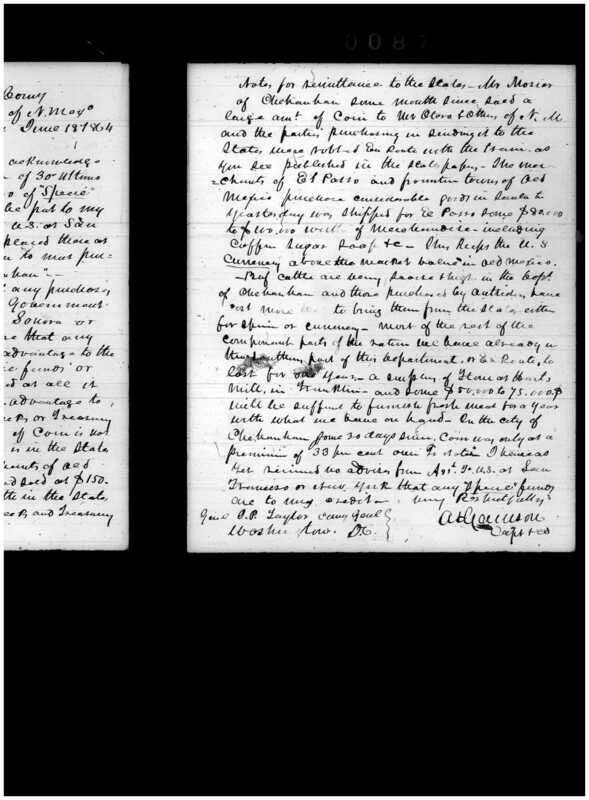 0087
Comy
of N. Mexo
June 18 1864
acknowledge
of 30 Ultimo
of "Specie"
be put to my
U.S. at San
placed there as
to must pur-
any purchases
Government
Sonora or
that any
advantage to the
funds or
at all it
advantage to
or Treasury
of Coin is not
is in the States
of Old
sold at $150.
in the States
and Treasury
Notes for remittance to the States - Mr
of Chihuahua some months since, sold a
large amt of Coin to Mr & Others of N. M
and the parties purchasing in sending it to the
States were robbed En Route with the train as
you see published in the State papers - The mer-
chants of El Passo and frontier towns of Old
Mexico purchase considerable goods in Santa Fe
Yesterday was shipped for El Passo some $90.000
to $100.000 worth of Merchandise - including
Coffee Sugar Soap &c - This keeps the U.S
Currency above the market value in Old Mexico.
Beef cattle are very scarce & high in the Dept.
of Chihuahua and those purchased by have
to bring them from the States either
for specie or currency - most of the rest of the
component parts of the ration we have already in
the southern part of this Department, or En Route, to
last for one year - a supply of flour at Harts
Mill, in Franklin - and some $50.000 to 75.000
will be sufft to furnish fresh meat for a year
with what we have on hand - In the city of
Chihuahua some 20 days since, Coin was only at a
premium of 33 per cent over Tr. notes I have as
yet received no advices from Asst Tr. U.S. at San
Francisco or New York that any "Specie" funds
are to my credit - Very Respectfully
Genl J. P. Taylor Comy Genl
Washington D.C.
Capt & CS